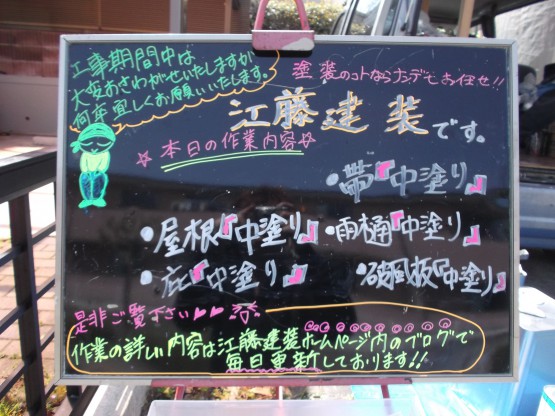 工事期間中は
大変おさわがせいたしますが
何卒宜しくお願いいたします。
塗装のコトならナンデモお任せ!!
江藤建装です。
☆本日の作業内容☆
・帯『中塗り』
・屋根『中塗り』
・雨樋『中塗り』
・庇『中塗り』
・破風板『中塗り』
是非ご覧下さい♥♥
作業の詳しい内容は江藤建装ホームページ内のブログで
毎日更新しております!!